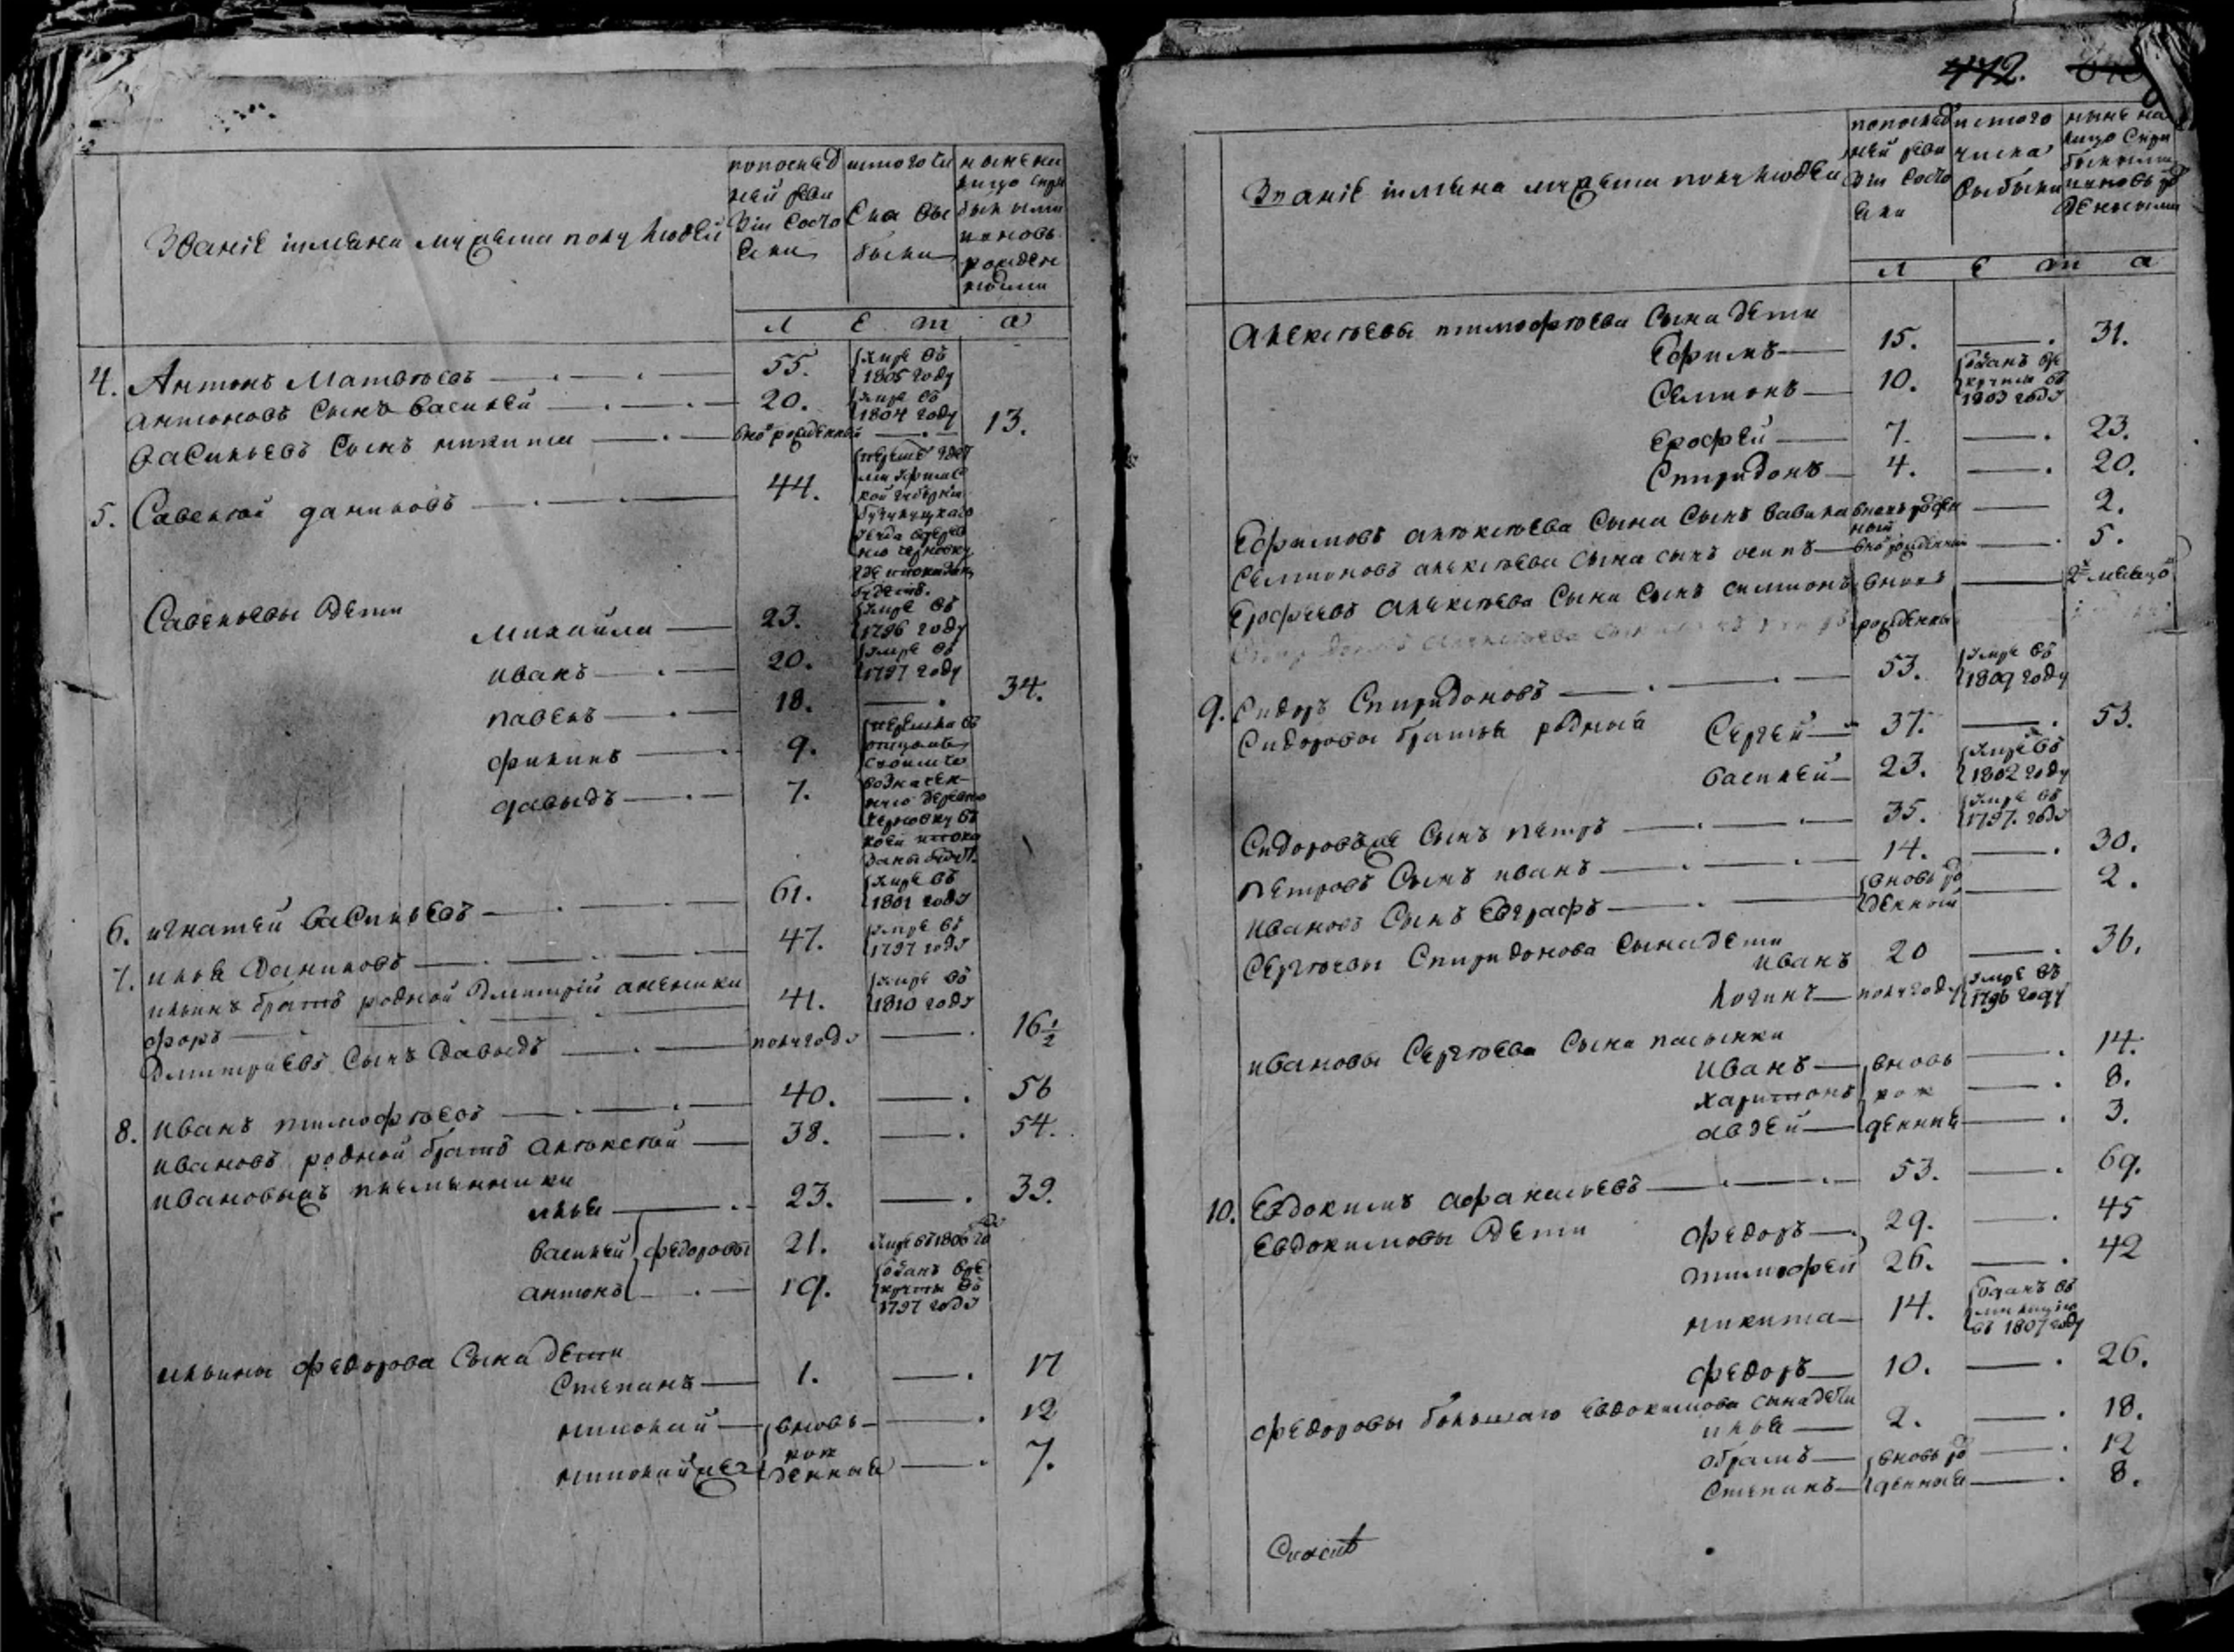 Званіе iимена мужеска полу людей
попослед
ней реви
зіи состо
яли
изтого чи
сла вы
были
ныне на
лицо спри
былыми
ивновь
рожден
ными
л е т а
4. Антонъ Матвѣевъ 55. умре въ
1805 году
антоновъ сынъ василей 20. умре въ
1804 году
васильевъ сынъ никита вновь рожденный 13.
5. Савелѣй даниловъ 44.
уезда вдерев
ню
где ипоказанъ
будетъ.
Савельевы дети
михайла 23. умре въ
1796 году
иванъ 20. умре въ
1797 году
павелъ 18. 34.
филипъ 9.
давыдъ 7.
сотцомъ
своимъ
деревню
вь
коей ипока
заны будут.
6. игнатей васильевъ 61. умре въ
1801 году
7. илья Даниловъ 47. умре въ
1797 году
ильинъ братъ родной Дмитрій аленики
форъ 41. умре въ
1810 году
Дмитриевъ сынъ Давыдъ полугоду 16 1/2
8. иванъ тимофѣевъ 40. 56
ивановъ родной братъ алѣксѣй 38. 54.
ивановыхъ племянники
илья 23. 39.
василей федоровы 21. умре въ 1806 го
антонъ 19. отданъ вре
круты въ
1797 году
ильины федорова сына дети
степанъ 1. 17
николай вновь 12
рож
николай же денныя 7.
472.
Званіе iимена мужеска полу людей
попослед
ней реви
зіи состо
яли
изтого
числа
выбыли
ныне на
лицо спри
былыми
ивновь ро
жденными
л е т а
алексѣевы тимофѣева сына дети
Ефимъ 15. 31.
Семионъ 10. отданъ вре
круты въ
1803 году
Ерофей 7. 23.
Спиридонъ 4. 20.
Ефимовъ алѣксѣева сына сынъ вавила вновь рожден
ный 2.
Семионовъ алексѣева сына сынъ осипъ вновь рожденный 5.
Ерофеевъ алексѣева сына сынъ симионъ вновь
рожденны 2х месяцов
9. Сидоръ Спиридоновъ 53. умре въ
1809 году
Сидоровы братья родныя Сергей 37. 53.
василей 23. умре въ
1802 году
Сидоровъ же сынъ петръ 35. умре въ
1797. году
петровъ сынъ иванъ 14. 30.
ивановъ сынъ Евграфъ вновь ро
жденной 2.
Сергѣевы Спиридонова сына дети
иванъ 20 36.
логинъ полугоду умре въ
1796 году
ивановы Сергѣева сына пасынки
иванъ вновь 14.
харитонъ рож 8.
авдей денные 3.
10. Евдокимъ афанасьевъ 53. 69.
Евдокимовы дети федоръ 29. 45
тимофей 26. 42
никита 14. отданъ въ
милицію
въ 1807 году
федоръ 10. 26.
федоровы большаго Евдокимова сына дети
илья 2. 18.
абрамъ вновь ро 12
Степанъ жденныя 8.